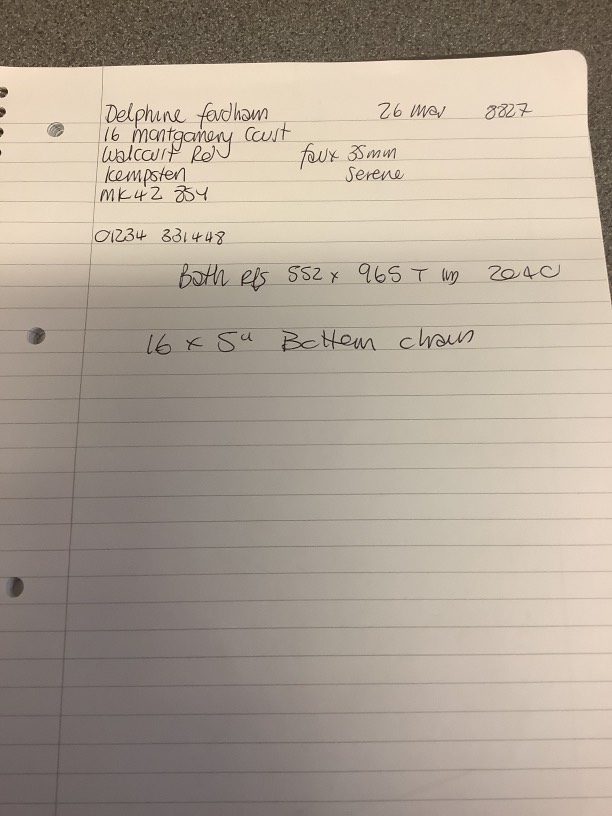 Delphine Fordham 26 Mar 8827
16 Montgomery Court
Walcourt Rd
Kempston faux 35mm
MK42 8SY Serene
01234 331448
Both 552 x 965 T 2040
16 x 5" Bottom chain